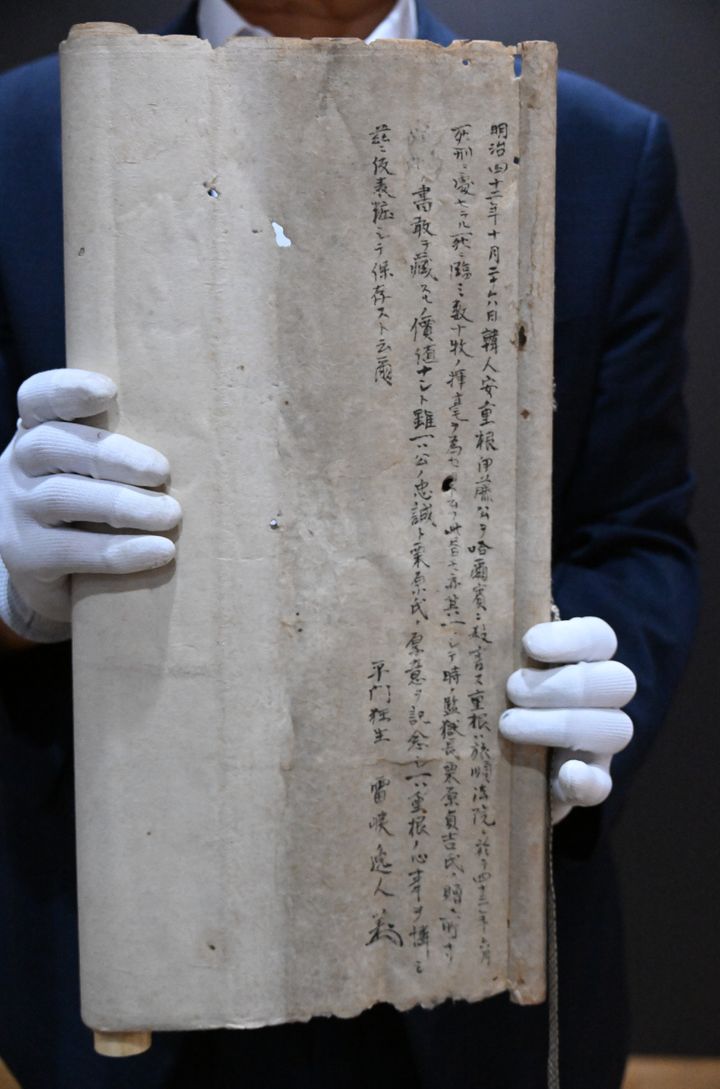 明治四十二年十月二十六日韓人安重根伊藤公ヲ哈爾賓ニ殺害ス重根ハ旅順法院ニ於テ四十三年六月
死刑ニ處セラル死ニ臨ミ数十牧ノ揮毫ヲ為セ此書モ亦其一ニシテ時ノ監獄長栗原貞吉氏ノ贈ル所ナリ
書敢テ藏スヘキノ價値ナシト雖一ハ公ノ忠誠ト栗原氏ノ厚意ヲ記念シ一ハ重根ノ心事ヲ憐ミ
茲ニ仮表粧シテ保存スト云爾
平門狂生 雷峡逸人